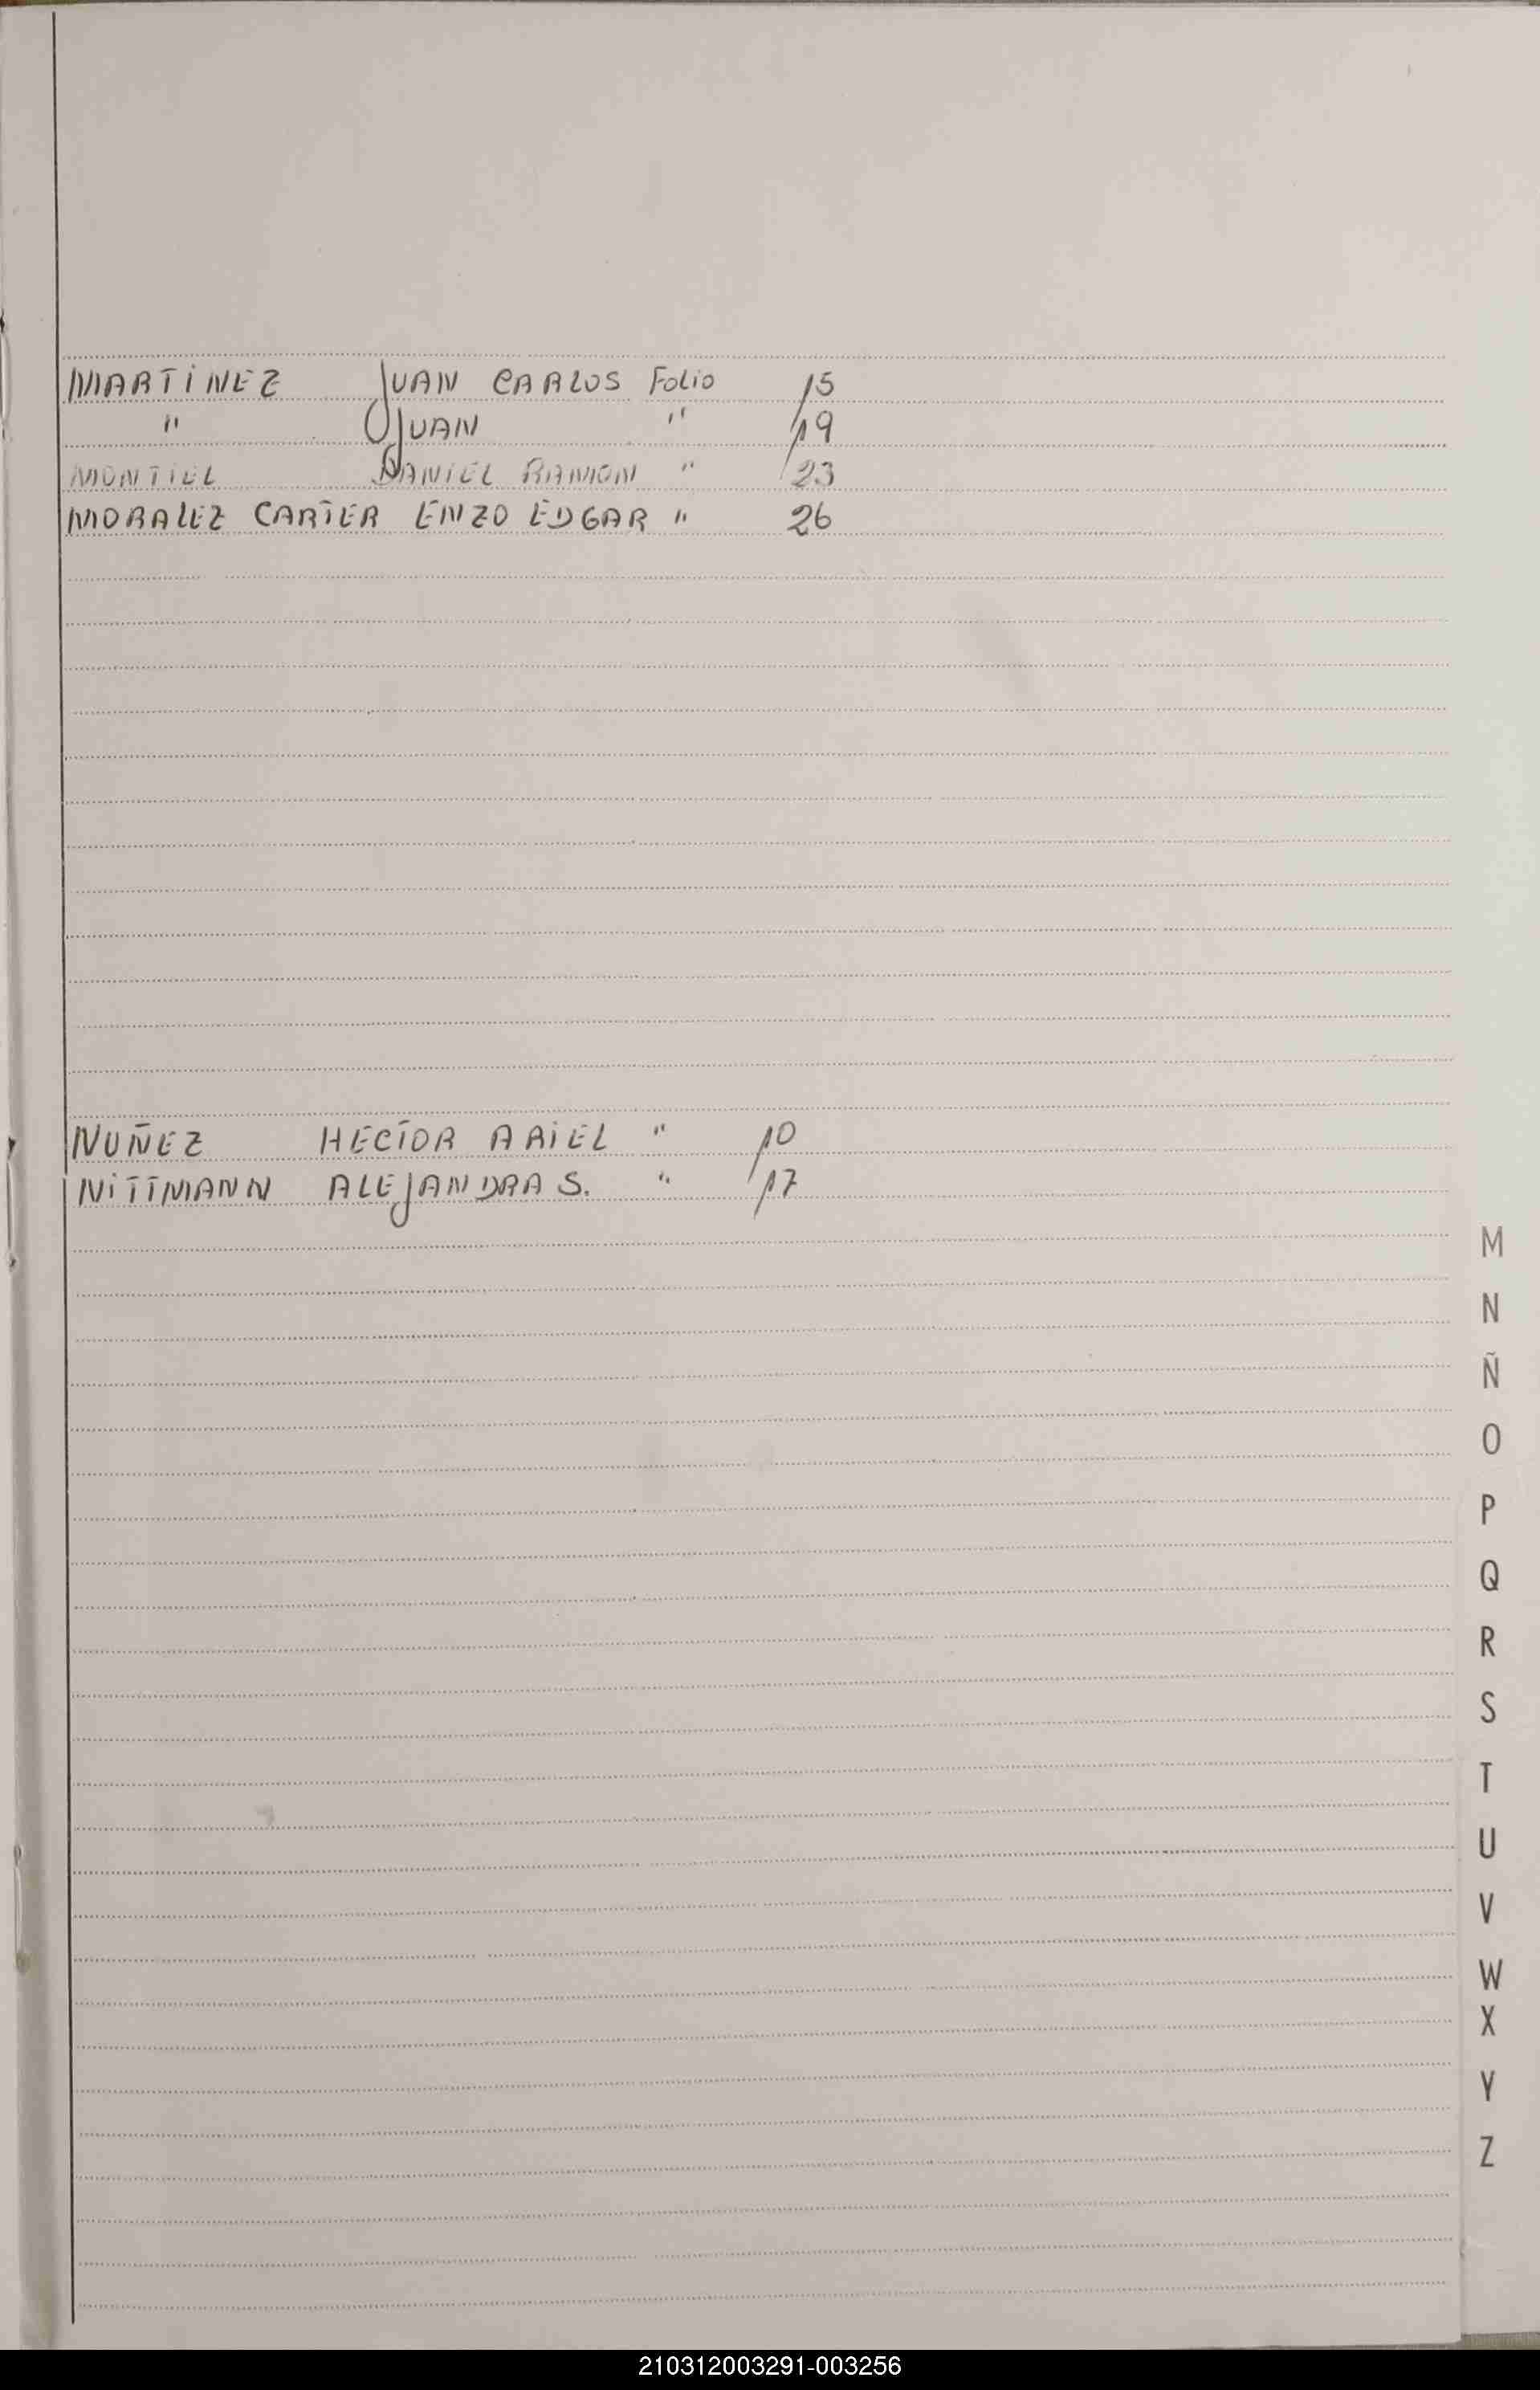 MARTINEZ JUAN CARLOS FOLIO 15
" JUAN " 19
MONTIEL DANIEL RAMON " 23
MORALEZ CARTER ENZO EDGAR " 26
NUÑEZ HECTOR ARIEL " 10
NITTMANN ALEJANDRA S. " 17
M
N
Ñ
O
P
Q
R
S
T
U
V
W
X
Y
Z
210312003291-003256